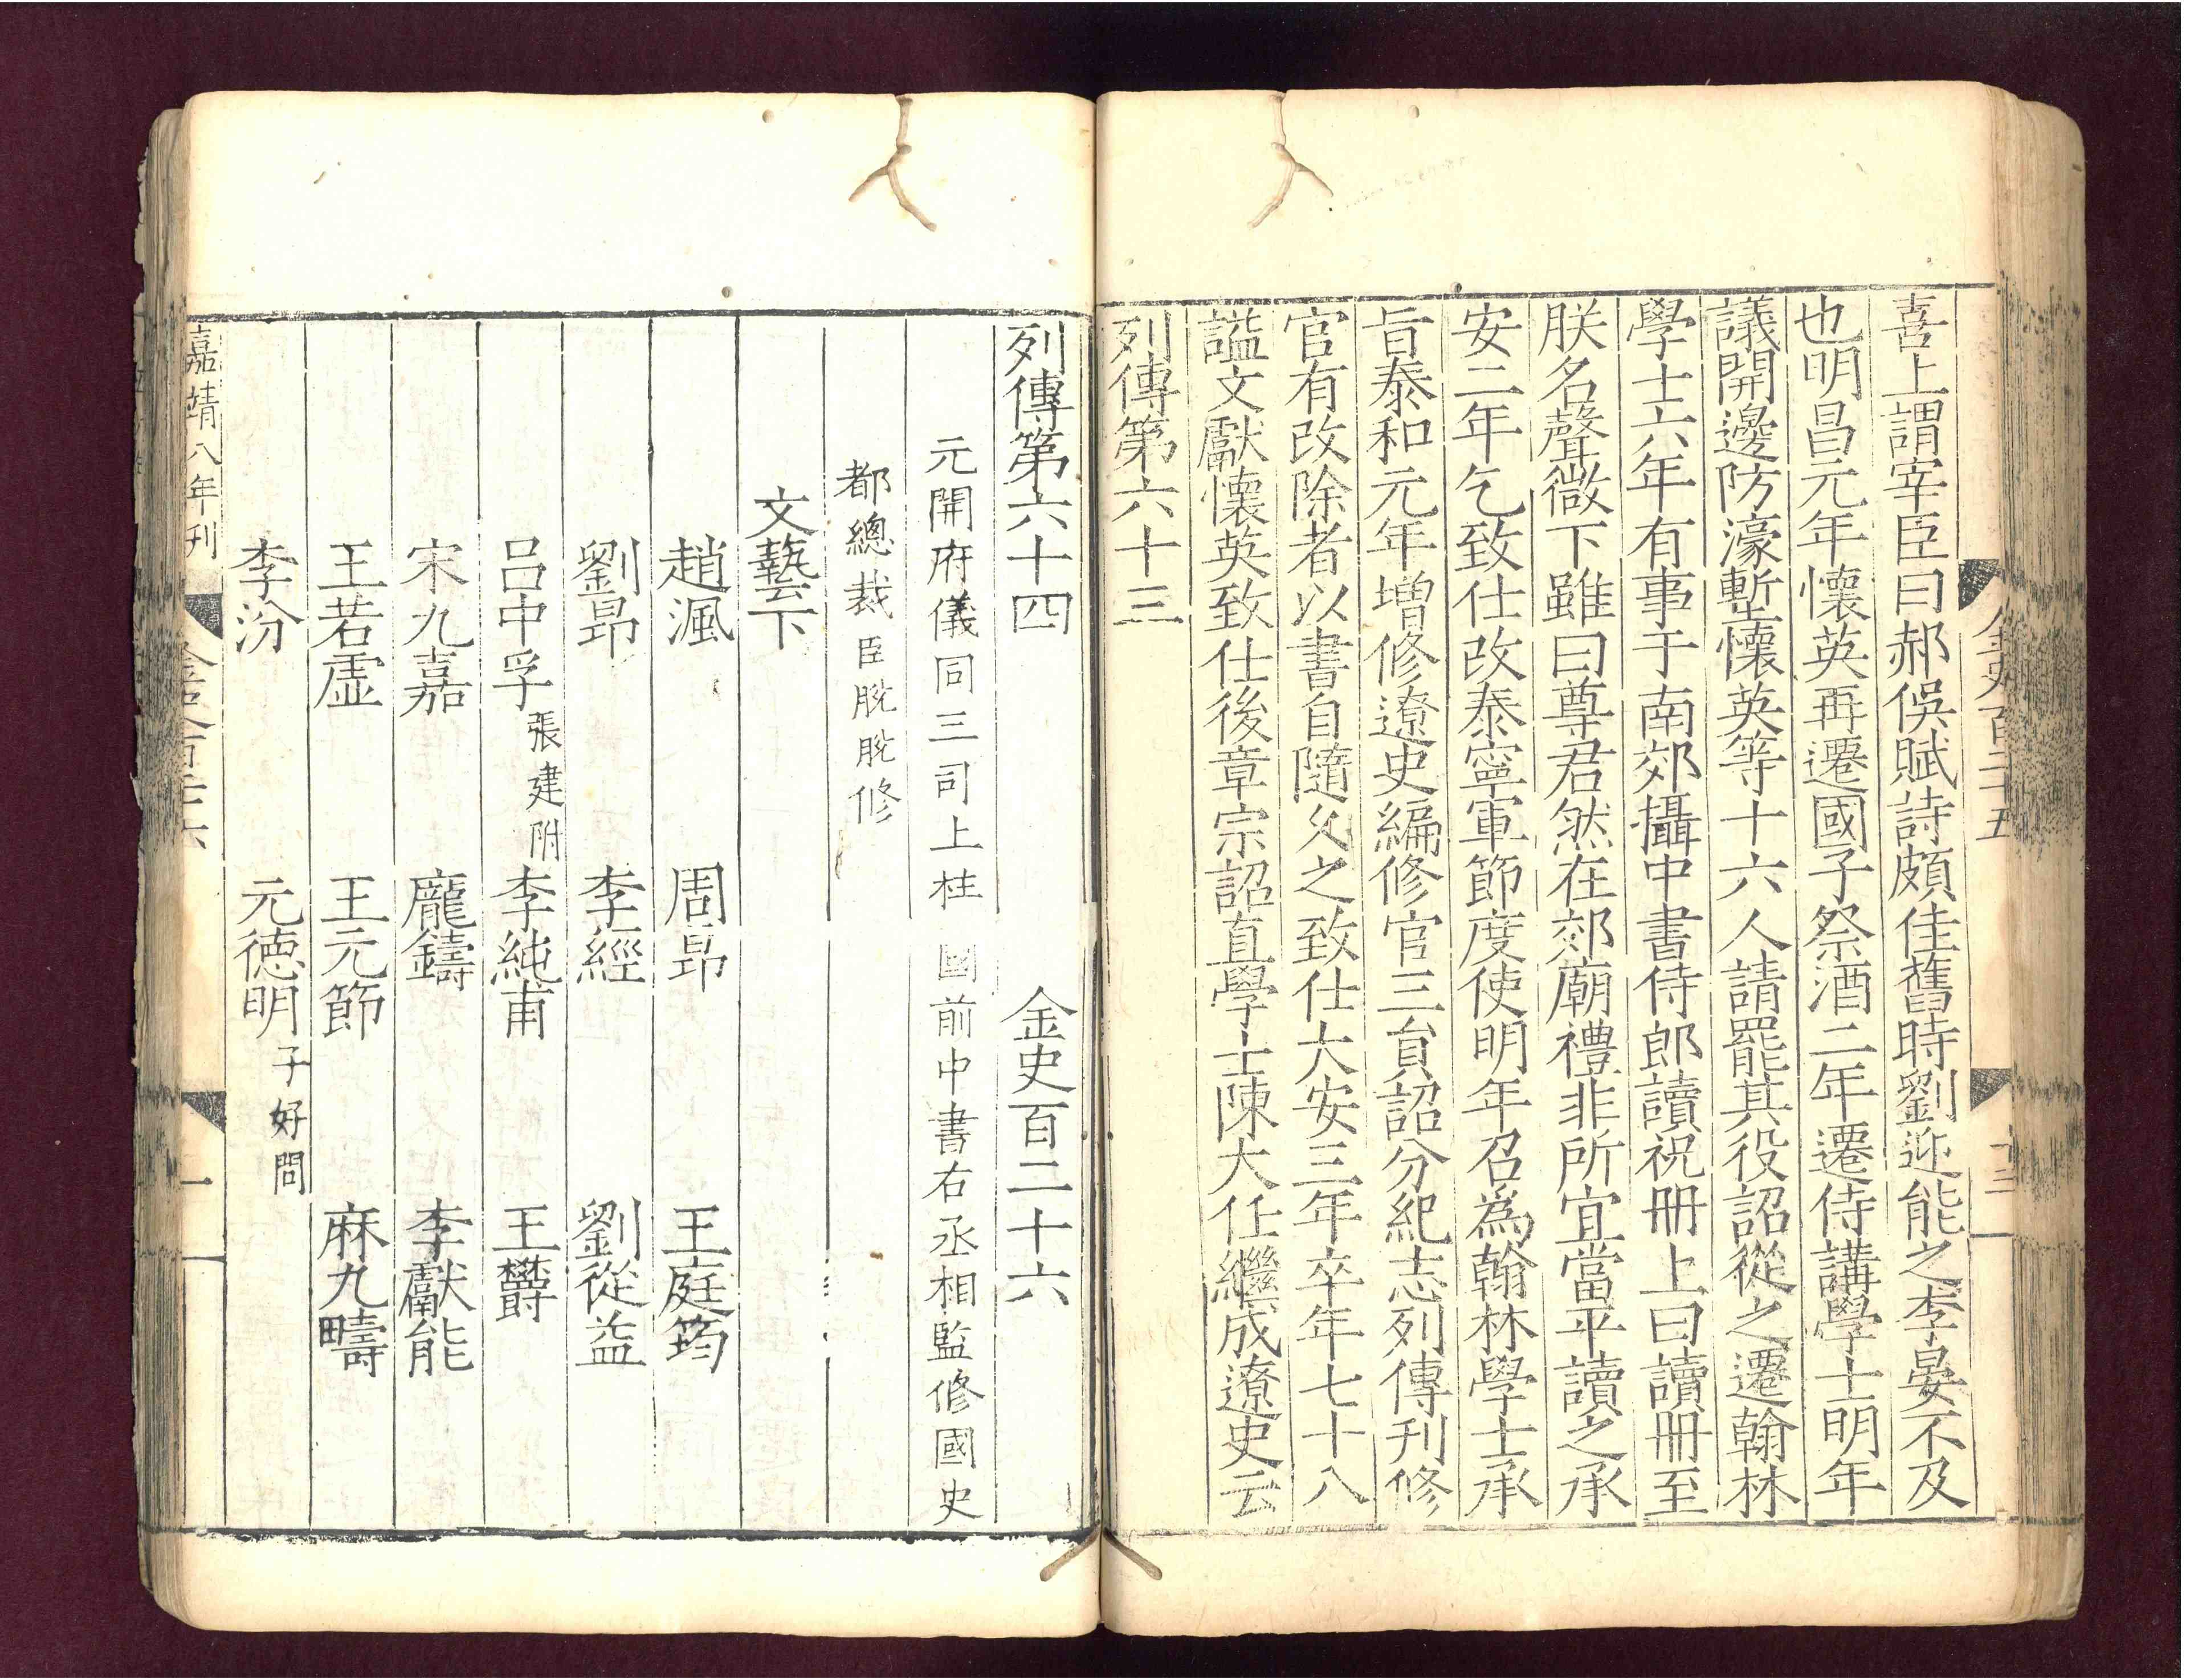 喜上謂宰臣曰郝俁賦詩頗佳舊時劉迎能之李晏不及
也明昌元年懷英再遷國子祭酒二年遷侍講學士明年
議開邊防濠塹懷英等十六人請罷其役詔從之遷翰林
學士六年有事于南郊攝中書侍郎讀祝冊上曰讀冊至
朕名聲微下雖曰尊君然在郊廟禮非所宜當平讀之承
安二年乞致仕改泰寧軍節度使明年召為翰林學士承
旨泰和元年增修遼史編修官三員詔分紀志列傳刊修
官有改除者以書自隨久之致仕大安三年卒年七十八
諡文獻懷英致仕後章宗詔直學士陳大任繼成遼史云
列傳第六十三
列傳第六十四 金史百二十六
元開府儀同三司上柱國前中書右丞相監修國史
都總裁臣脫脫修
文藝下
趙渢 周昂 王庭筠
劉昂 李經 劉從益
呂中孚張建附 李純甫 王鬱
宋九嘉 龐鑄 李獻能
王若虛 王元節 麻九疇
李汾 元德明子好問
嘉靖八年刊 金史百二十六 一